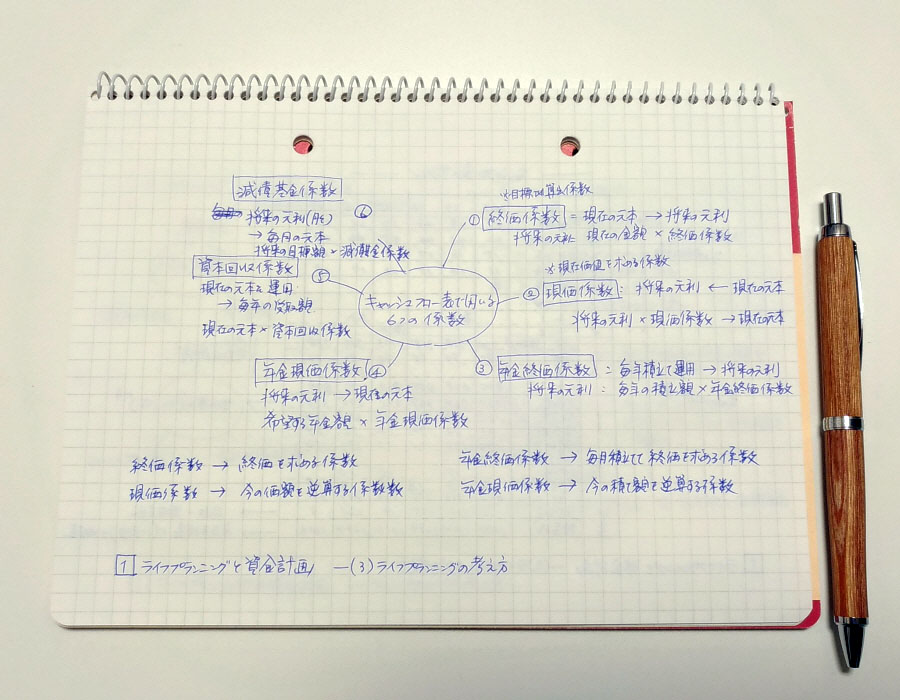 キャッシュフロー表で用いる
6つの係数
※目標 算出係数
① 終価係数 = 現在の元本 → 将来の元利
将来の元利 現在の金額 × 終価係数
※現在価値を求める係数
② 現価係数 : 将来の元利 ← 現在の元本
将来の元利 × 現価係数 → 現在の元本
③ 年金終価係数 = 毎年積立て運用 → 将来の元利
将来の元利 : 毎年の積立額 × 年金終価係数
年金現価係数 ④
将来の元利 → 現在の元本
希望する年金額 × 年金現価係数
資本回収係数 ⑤
現在の元本を運用
→ 毎年の受取額
現在の元本 × 資本回収係数
減債基金係数
⑥ 将来の元利
→ 毎月の元本
将来の目標額 × 減債金係数
終価係数 → 終価を求める係数
現価係数 → 今の価額を逆算する係数数
年金終価係数 → 毎月積立てて終価を求める係数
年金現価係数 → 今の積立額を逆算する係数
1 ライフプランニングと資金計画 ー(3)ライフプランニングの考え方